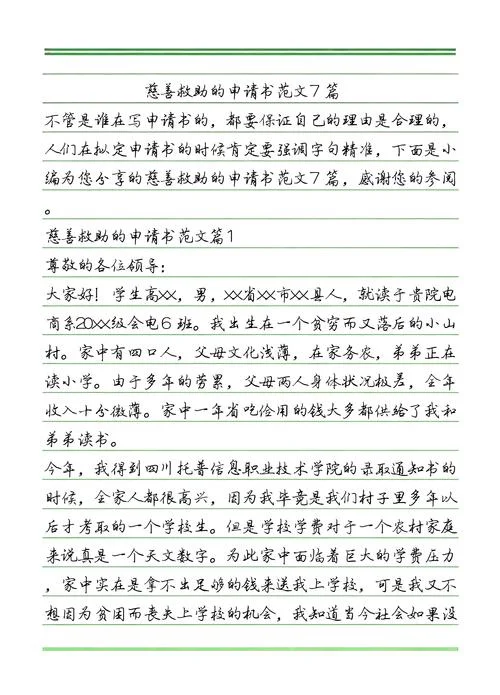 慈善救助的申请书范文7篇
不管是谁在写申请书的，都要保证自己的理由是合理的，
人们在拟定申请书的时候肯定要强调字句精准，下面是小
编为您分享的慈善救助的申请书范文7篇，感谢您的参阅
。
慈善救助的申请书范文篇1
尊敬的各位领导：
大家好！学生高XX，男，XX省XX市XX县人，就读于贵院电
商系20XX级会电6班。我出生在一个贫穷而又落后的小山
村。家中有四口人，父母文化浅薄，在家务农，弟弟正在
读小学。由于多年的劳累，父母两人身体状况极差，全年
收入十分微薄。家中一年省吃俭用的钱大多都供给了我和
弟弟读书。
今年，我得到四川托普信息职业技术学院的录取通知书的
时候，全家人都很高兴，因为我毕竟是我们村子里多年以
后才考取的一个学校生。但是学校学费对于一个农村家庭
来说真是一个天文数字。为此家中面临着巨大的学费压力
，家中实在是拿不出足够的钱来送我上学校，可是我又不
想因为贫困而丧失上学校的机会，我知道当今社会如果没